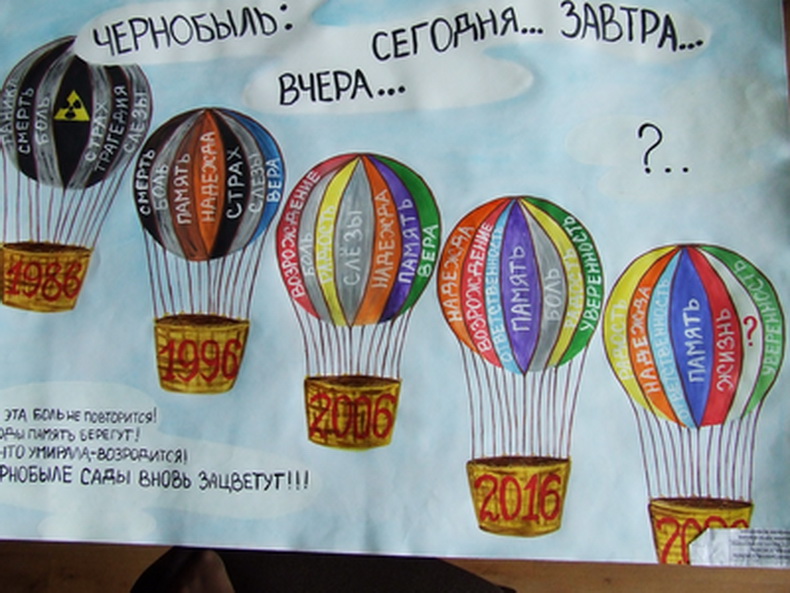 ЧЕРНОБЫЛЬ:
ВЧЕРА...
СЕГОДНЯ... ЗАВТРА...
?..
ПАНИКА
СМЕРТЬ
БОЛЬ
СТРАХ
ТРАГЕДИЯ
СЛЁЗЫ
1986
СМЕРТЬ
БОЛЬ
ПАМЯТЬ
НАДЕЖДА
СТРАХ
СЛЕЗЫ
ВЕРА
1996
ВОЗРОЖДЕНИЕ
БОЛЬ
РАДОСТЬ
СЛЁЗЫ
НАДЕЖДА
ПАМЯТЬ
ВЕРА
2006
НАДЕЖДА
ВОЗРОЖДЕНИЕ
ОТВЕТСТВЕННОСТЬ
ПАМЯТЬ
БОЛЬ
РАДОСТЬ
УВЕРЕННОСТЬ
2016
РАДОСТЬ
НАДЕЖДА
ОТВЕТСТВЕННОСТЬ
ПАМЯТЬ
ЖИЗНЬ
?
УВЕРЕННОСТЬ
ЭТА БОЛЬ НЕ ПОВТОРИТСЯ!
ОДЫ ПАМЯТЬ БЕРЕГУТ!
ЧТО УМИРАЛА-ВОЗРОДИТСЯ!
РНОБЫЛЕ САДЫ ВНОВЬ ЗАЦВЕТУТ!!!